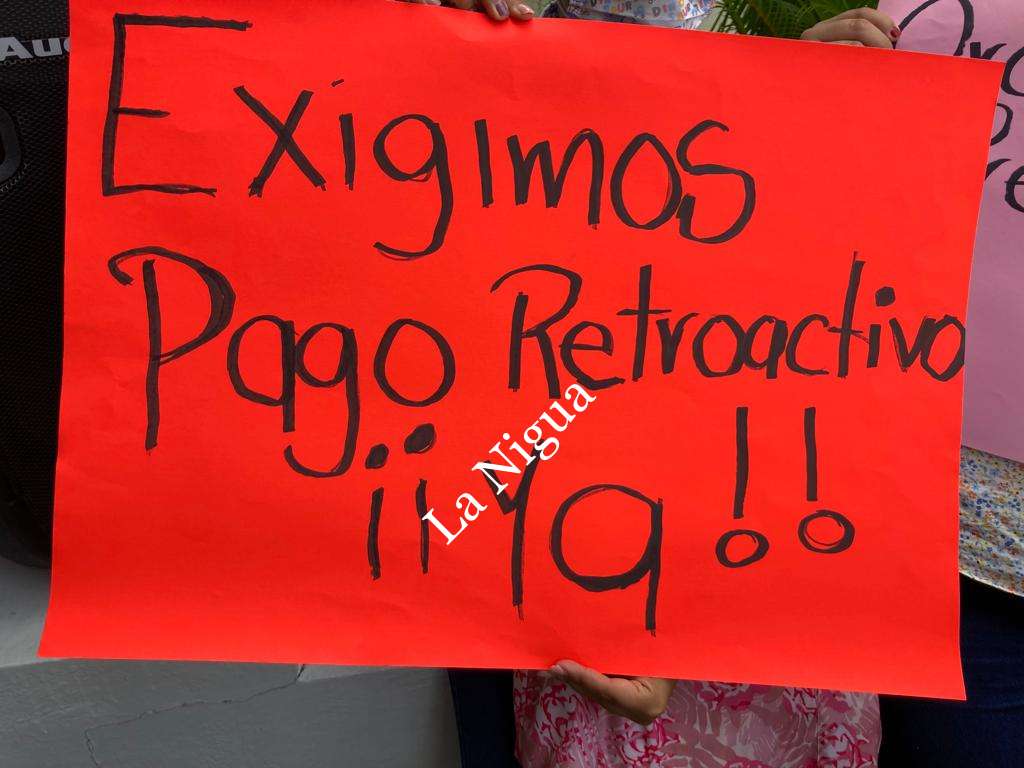 Exigimos
Pago Retroactivo
¡¡Ya!!
La Nigua